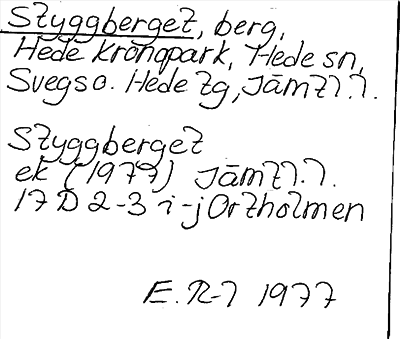 Styggberget, berg,
Hede kronopark, Hede sn,
Svegs o. Hede tg, Jämtl. l.
Styggberget
ek (1977) Jämtl. l.
17 D 2-3 i-j Ortholmen
E. R-l 1977